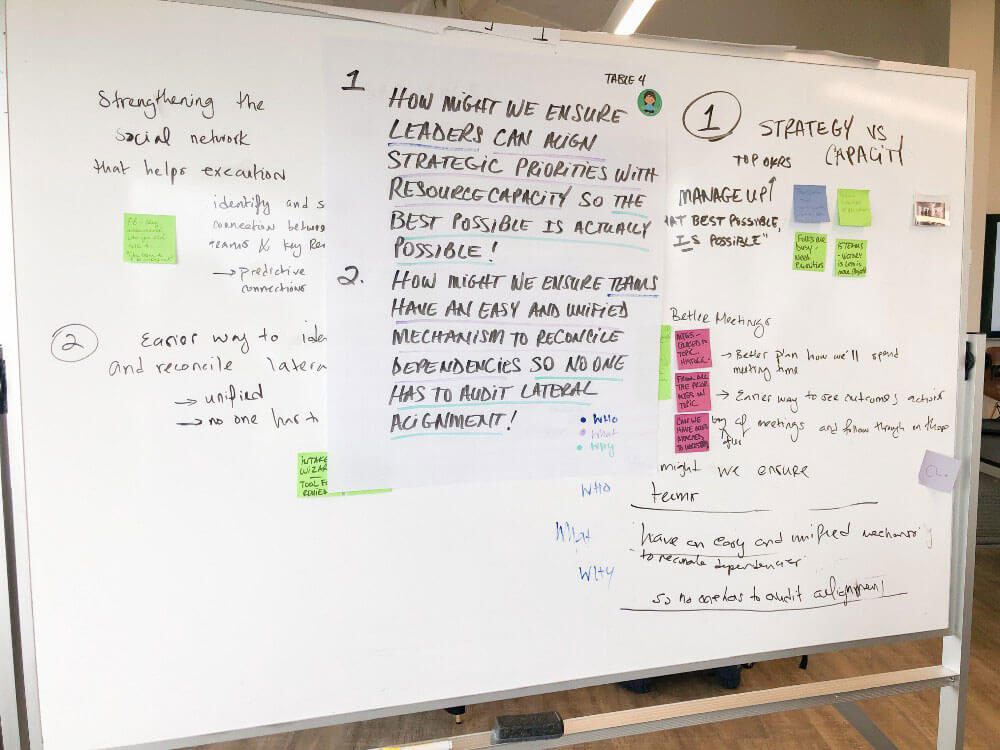 Strengthening the
social network
that helps execution
identify and s
connection betwee
teams & key Res
→ predictive
connections
2
Easier way to ide
and reconcile latera
→ unified
→ no one has t
INTAKE
WIZARD
TOOL F
REVIEW
TABLE 4
1
HOW MIGHT WE ENSURE
LEADERS CAN ALIGN
STRATEGIC PRIORITIES WITH
RESOURCE CAPACITY SO THE
BEST POSSIBLE IS ACTUALLY
POSSIBLE!
2.
HOW MIGHT WE ENSURE TEAMS
HAVE AN EASY AND UNIFIED
MECHANISM TO RECONCILE
DEPENDENCIES SO NO ONE
HAS TO AUDIT LATERAL
ALIGNMENT!
WHO
What
Why
WHO
What
WHY
1
STRATEGY VS
CAPACITY
TOP OKRS
MANAGE UP!
AT BEST POSSIBLE,
IS POSSIBLE"
FOLKS ARE
BUSY -
NEED
PRIORITIES
Better Meetings
MTGS -
TOPIC
→ Better plan how we'll spend
meeting time
→ Easier way to see outcomes, actions
CAN WE
HAVE
of meetings and follow through on those
might we ensure
teams
have an easy and unified mechanism
to reconcile dependencies
so no one has to audit alignment